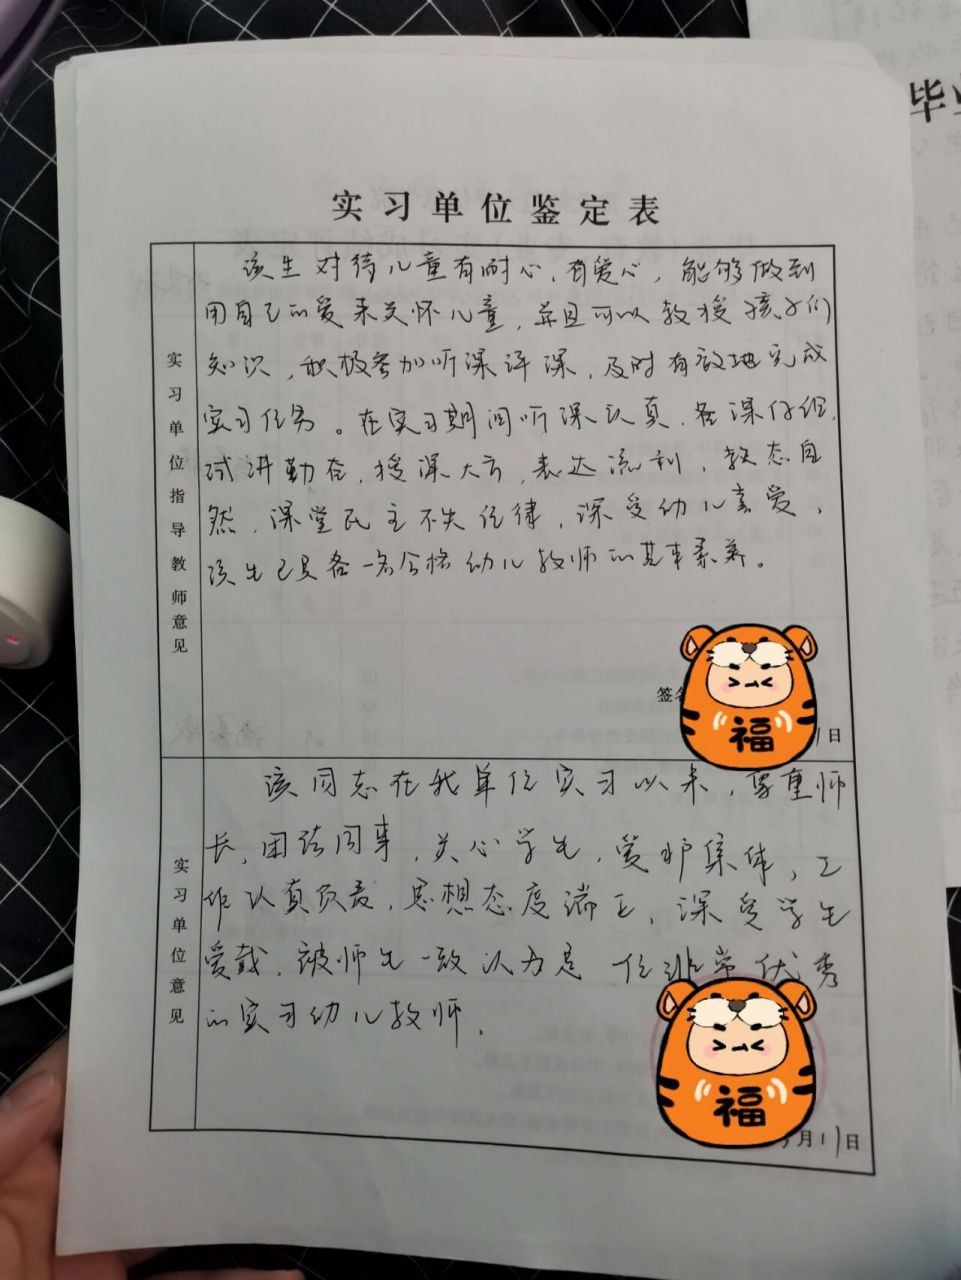 实习单位鉴定表
实习单位指导教师意见
该生对待儿童有耐心,有爱心,能够做到
用自己的爱来关怀儿童,并且可以教授孩子们
知识,积极参加听课评课,及时有效地完成
实习任务。在实习期间听课认真,备课仔细,
试讲勤奋,授课大方,表达流利,教态自
然,课堂民主不失纪律,深受幼儿喜爱,
该生已具备一名合格幼儿教师的基本素养。
日
实习单位意见
该同志在我单位实习以来,尊重师
长,团结同事,关心学生,爱护集体,工
作认真负责,思想态度端正,深受学生
爱戴,被师生一致认为是一位非常优秀
的实习幼儿教师。
月17日
福
福
毕业